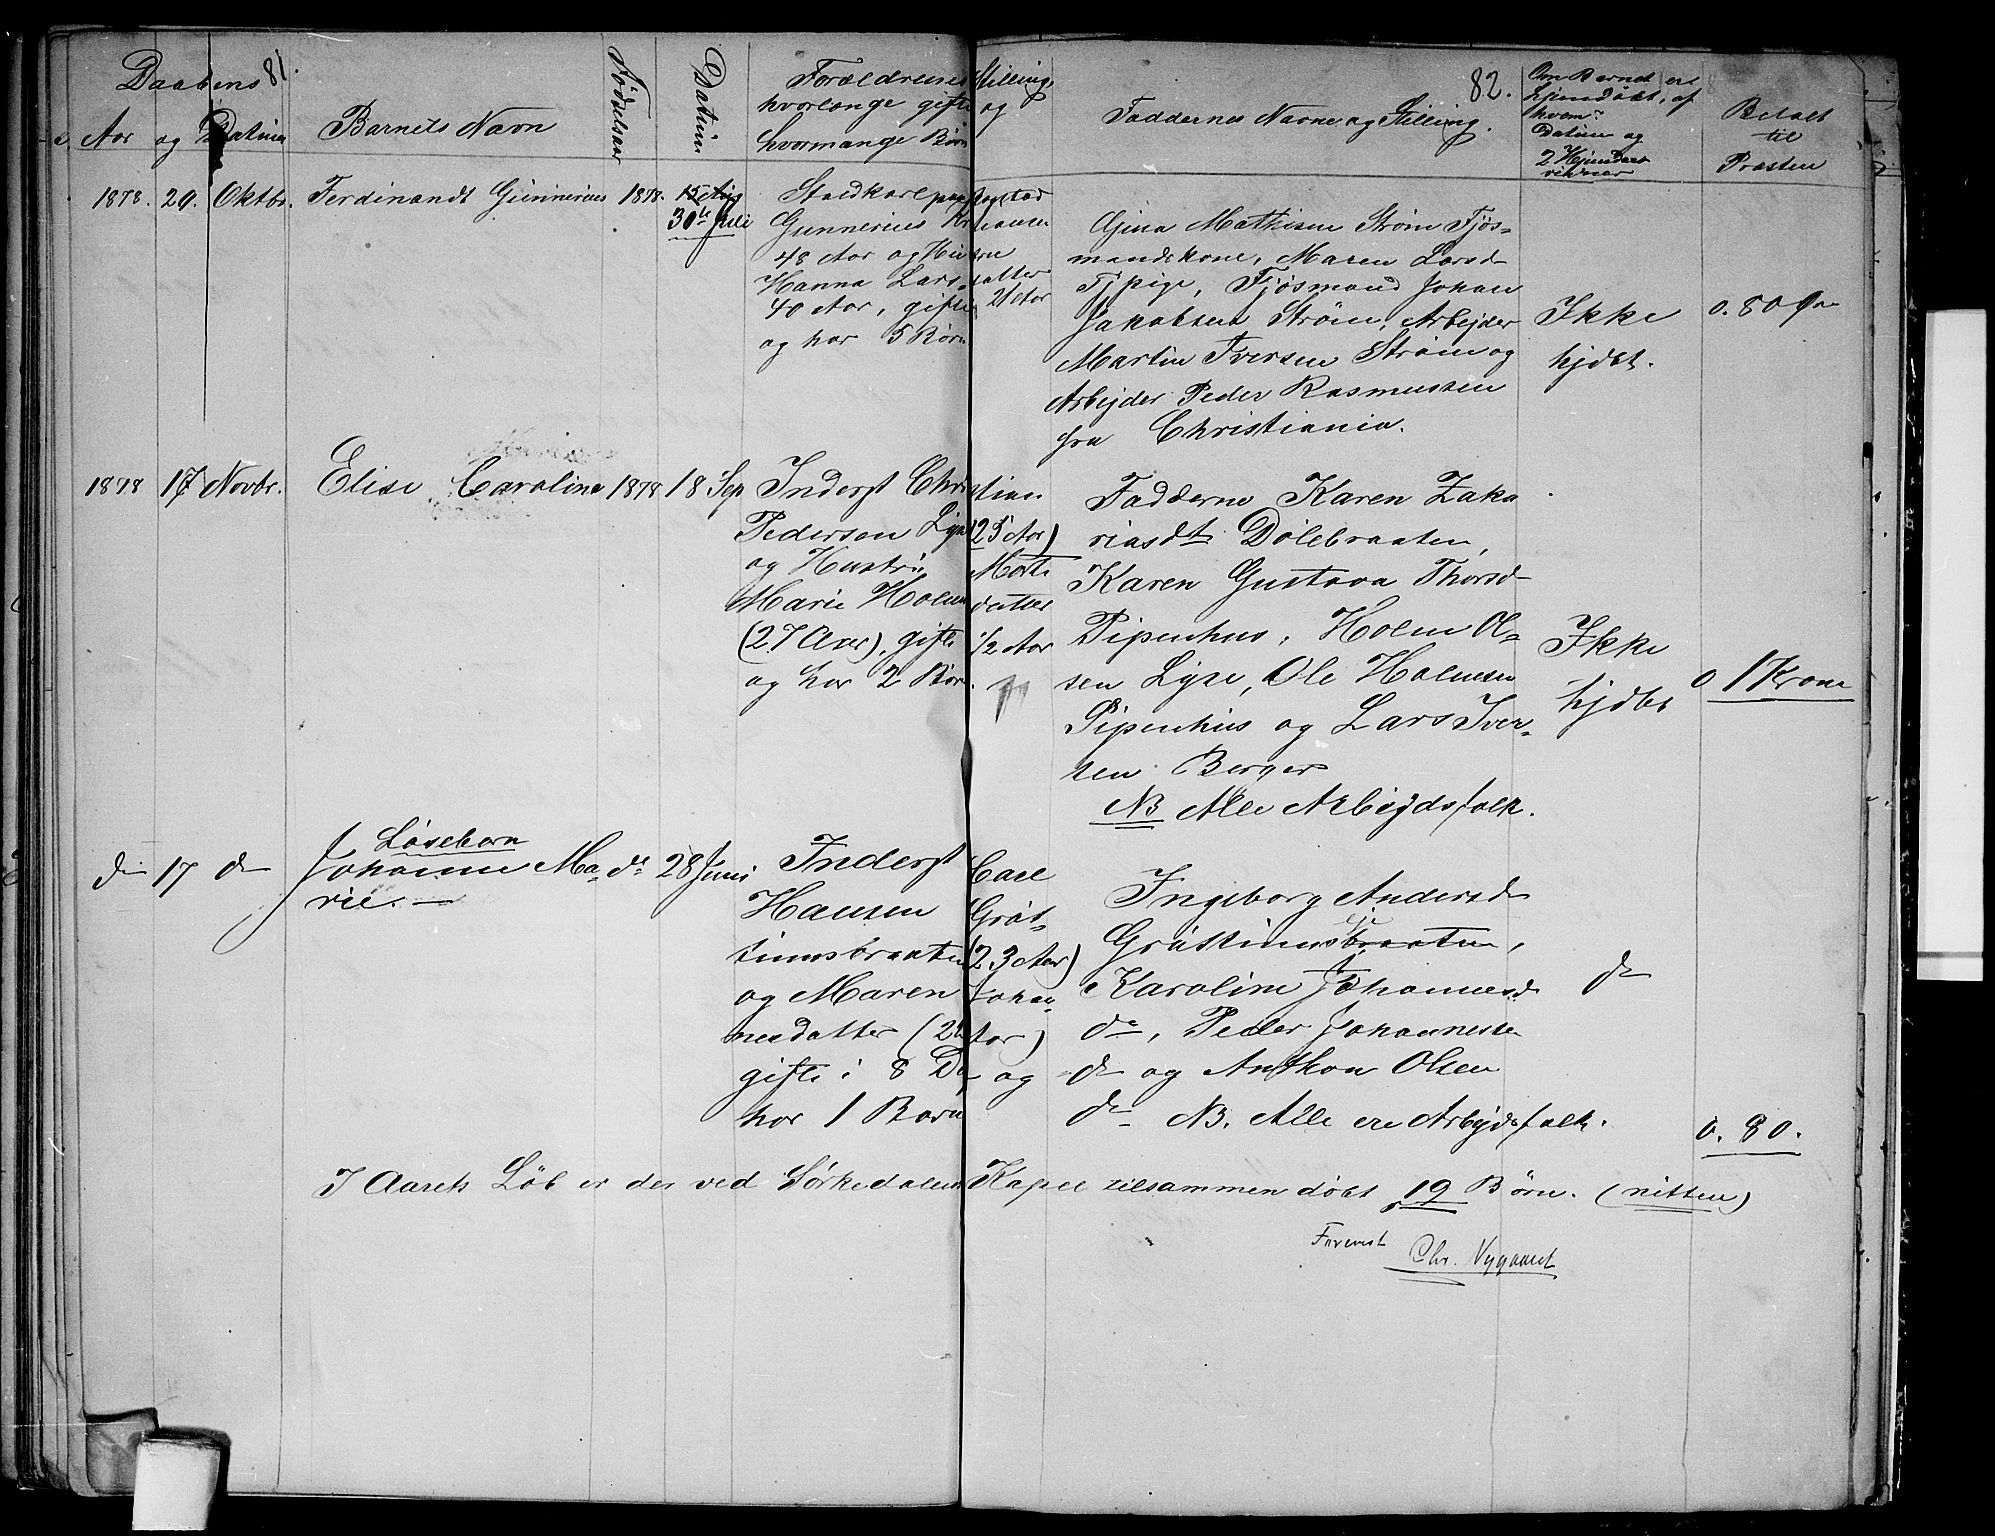 81.
Daabens
Aar og Datum
Barnets Navn
Fødselsaar
Datum
Forældrenes Stilling,
hvorlænge gifte og
hvormange Børn
82.
Faddernes Navne og Stilling.
Om Barnet er
hjemdøbt, af
hvem
Datum og
2 Hjemdaabs
vidner
Betalt
til
Præsten
1878. 29. Oktbr. Ferdinandt Gunnerius 1878.
30te Juli
Staldkarl
Gunnerius
48 Aar og Hustru
Hanna Larsdatter
40 Aar, gifte 21 Aar
og har 5 Børn
Gina Mathisen Strøm Fjøs-
mandskone, Maren Larsd
Tjpige, Fjøsmand Johan
Jakobsen Strøm, Arbejder
Martin Iversen Strøm og
Arbejder Peder Rasmussen
fra Christiania.
Ikke
hjdbt.
0. 80 Øre
1878 17 Novbr. Elise Caroline 1878 18 Sep
Inderst Christian
Pedersen (25 Aar)
og Hustru
Marie Holm datter
(27 Aar), gifte 1/2 Aar
og har 2 Børn.
Fadderne Karen Zaka
riasdt Dölebraaten,
Karen Gustava Thorsd
Pipenhus, Holm Ol-
sen Lyse, Ole Holmsen
Pipenhus og Lars Iver-
sen Berger
NB Alle Arbejdsfolk.
Ikke
hjdbt
0 1 Krone
do 17 do
Løsebarn
Johanne Ma- do 28 Juni
rie.
Inderst Carl
Hansen Gräs-
tinnsbraaten (23 Aar)
og Maren Johan-
nesdatter
gifte i 8 Da og
har 1 Barn
Ingeborg Andersd
Gråstinnsbraaten,
eje
Karoline Johannesd
do, Peder Johannesen
do og Anthon Olsen
do NB. Alle ere Arbejdsfolk.
do
0. 80.
I Aarets Løb er der ved Sørkedalens Kapel tilsammen døbt 19 Børn. (nitten)
Chr. Nygaard